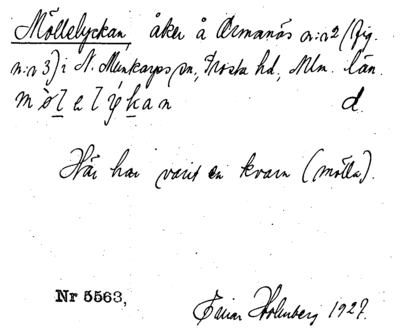 Möllelyckan, åker å Ormanäs n:r 2 (fig.
n:r 3) i N. Munkarps sn, Frosta hd, Mlm. län.
mö̀lelýkan d.
Här har varit en kvarn (mölla).
Nr 5563,
Einar Holmberg 1927.